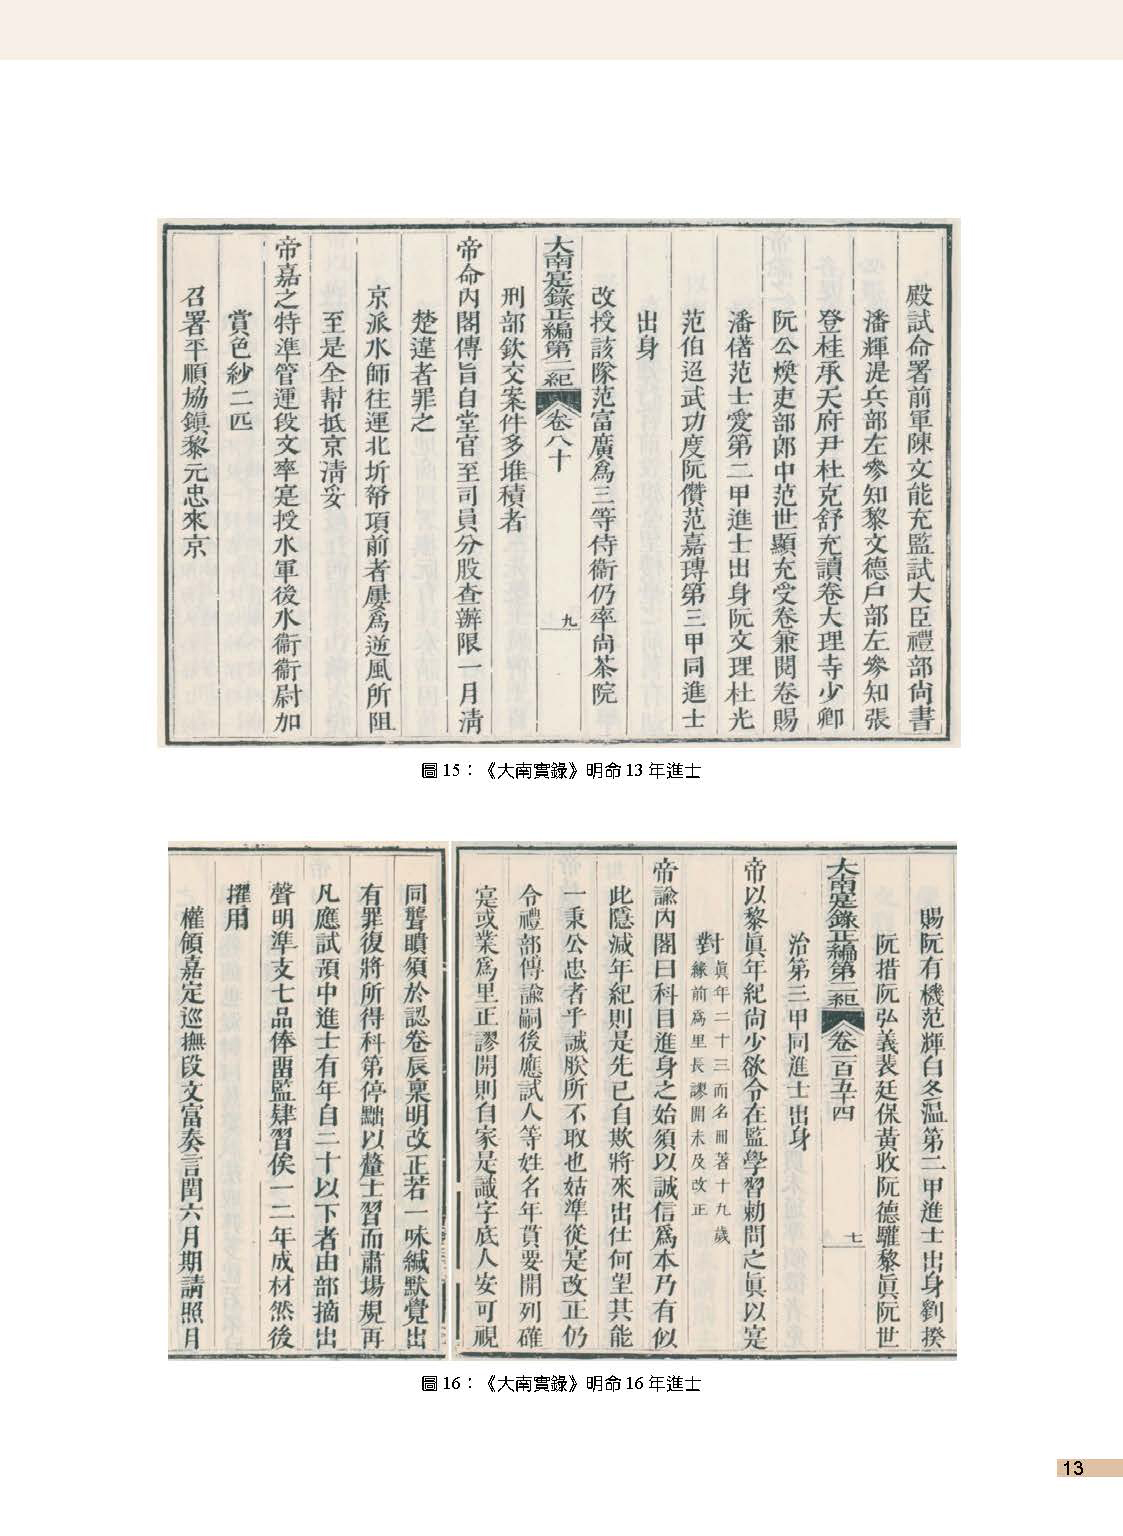 殿試命署前軍陳文能充監試大臣禮部尚書
潘輝湜兵部左參知黎文德戶部左參知張
登桂承天府尹杜克舒充讀卷大理寺少卿
阮公煥吏部郎中范世顯充受卷兼閱卷賜
潘偖范士愛第二甲進士出身阮文理杜光
范伯迢武功度阮儹范嘉瑼第三甲同進士
出身
改授該隊范富廣爲三等侍衞仍率尚茶院
大南寔錄正編第二紀 卷八十 九
刑部欽交案件多堆積者
帝命內閣傳旨自堂官至司員分股查辦限一月清
楚違者罪之
京派水師往運北圻帑項前者屢爲逆風所阻
至是全幇抵京淸妥
帝嘉之特準管運段文率寔授水軍後水衞衞尉加
賞色紗二匹
召署平順協鎭黎元忠來京
圖 15：《大南實錄》明命 13 年進士
賜阮有機范輝白冬溫第二甲進士出身劉揆
阮措阮弘義裴廷保黃收阮德驩黎眞阮世
治第三甲同進士出身
大南寔錄正編第二紀 卷一百五十四 七
帝以黎眞年紀尙少欲令在監學習勅問之眞以寔
對 眞年二十三而名冊著十九歲
緣前爲里長謬開未及改正
帝諭內閣曰科目進身之始須以誠信爲本乃有似
此隱減年紀則是先已自欺將來出仕何望其能
一秉公忠者乎誠朕所不取也姑準從寔改正仍
令禮部傳諭嗣後應試人等姓名年貫要開列確
寔或業爲里正謬開則自家是識字底人安可視
同聾瞶須於認卷辰稟明改正若一味緘默覺出
有罪復將所得科第停黜以釐士習而肅場規再
凡應試預中進士有年自二十以下者由部摘出
聲明準支七品俸畱監肄習俟一二年成材然後
擢用
權領嘉定巡撫段文富奏言閏六月期請照月
圖 16：《大南實錄》明命 16 年進士
13